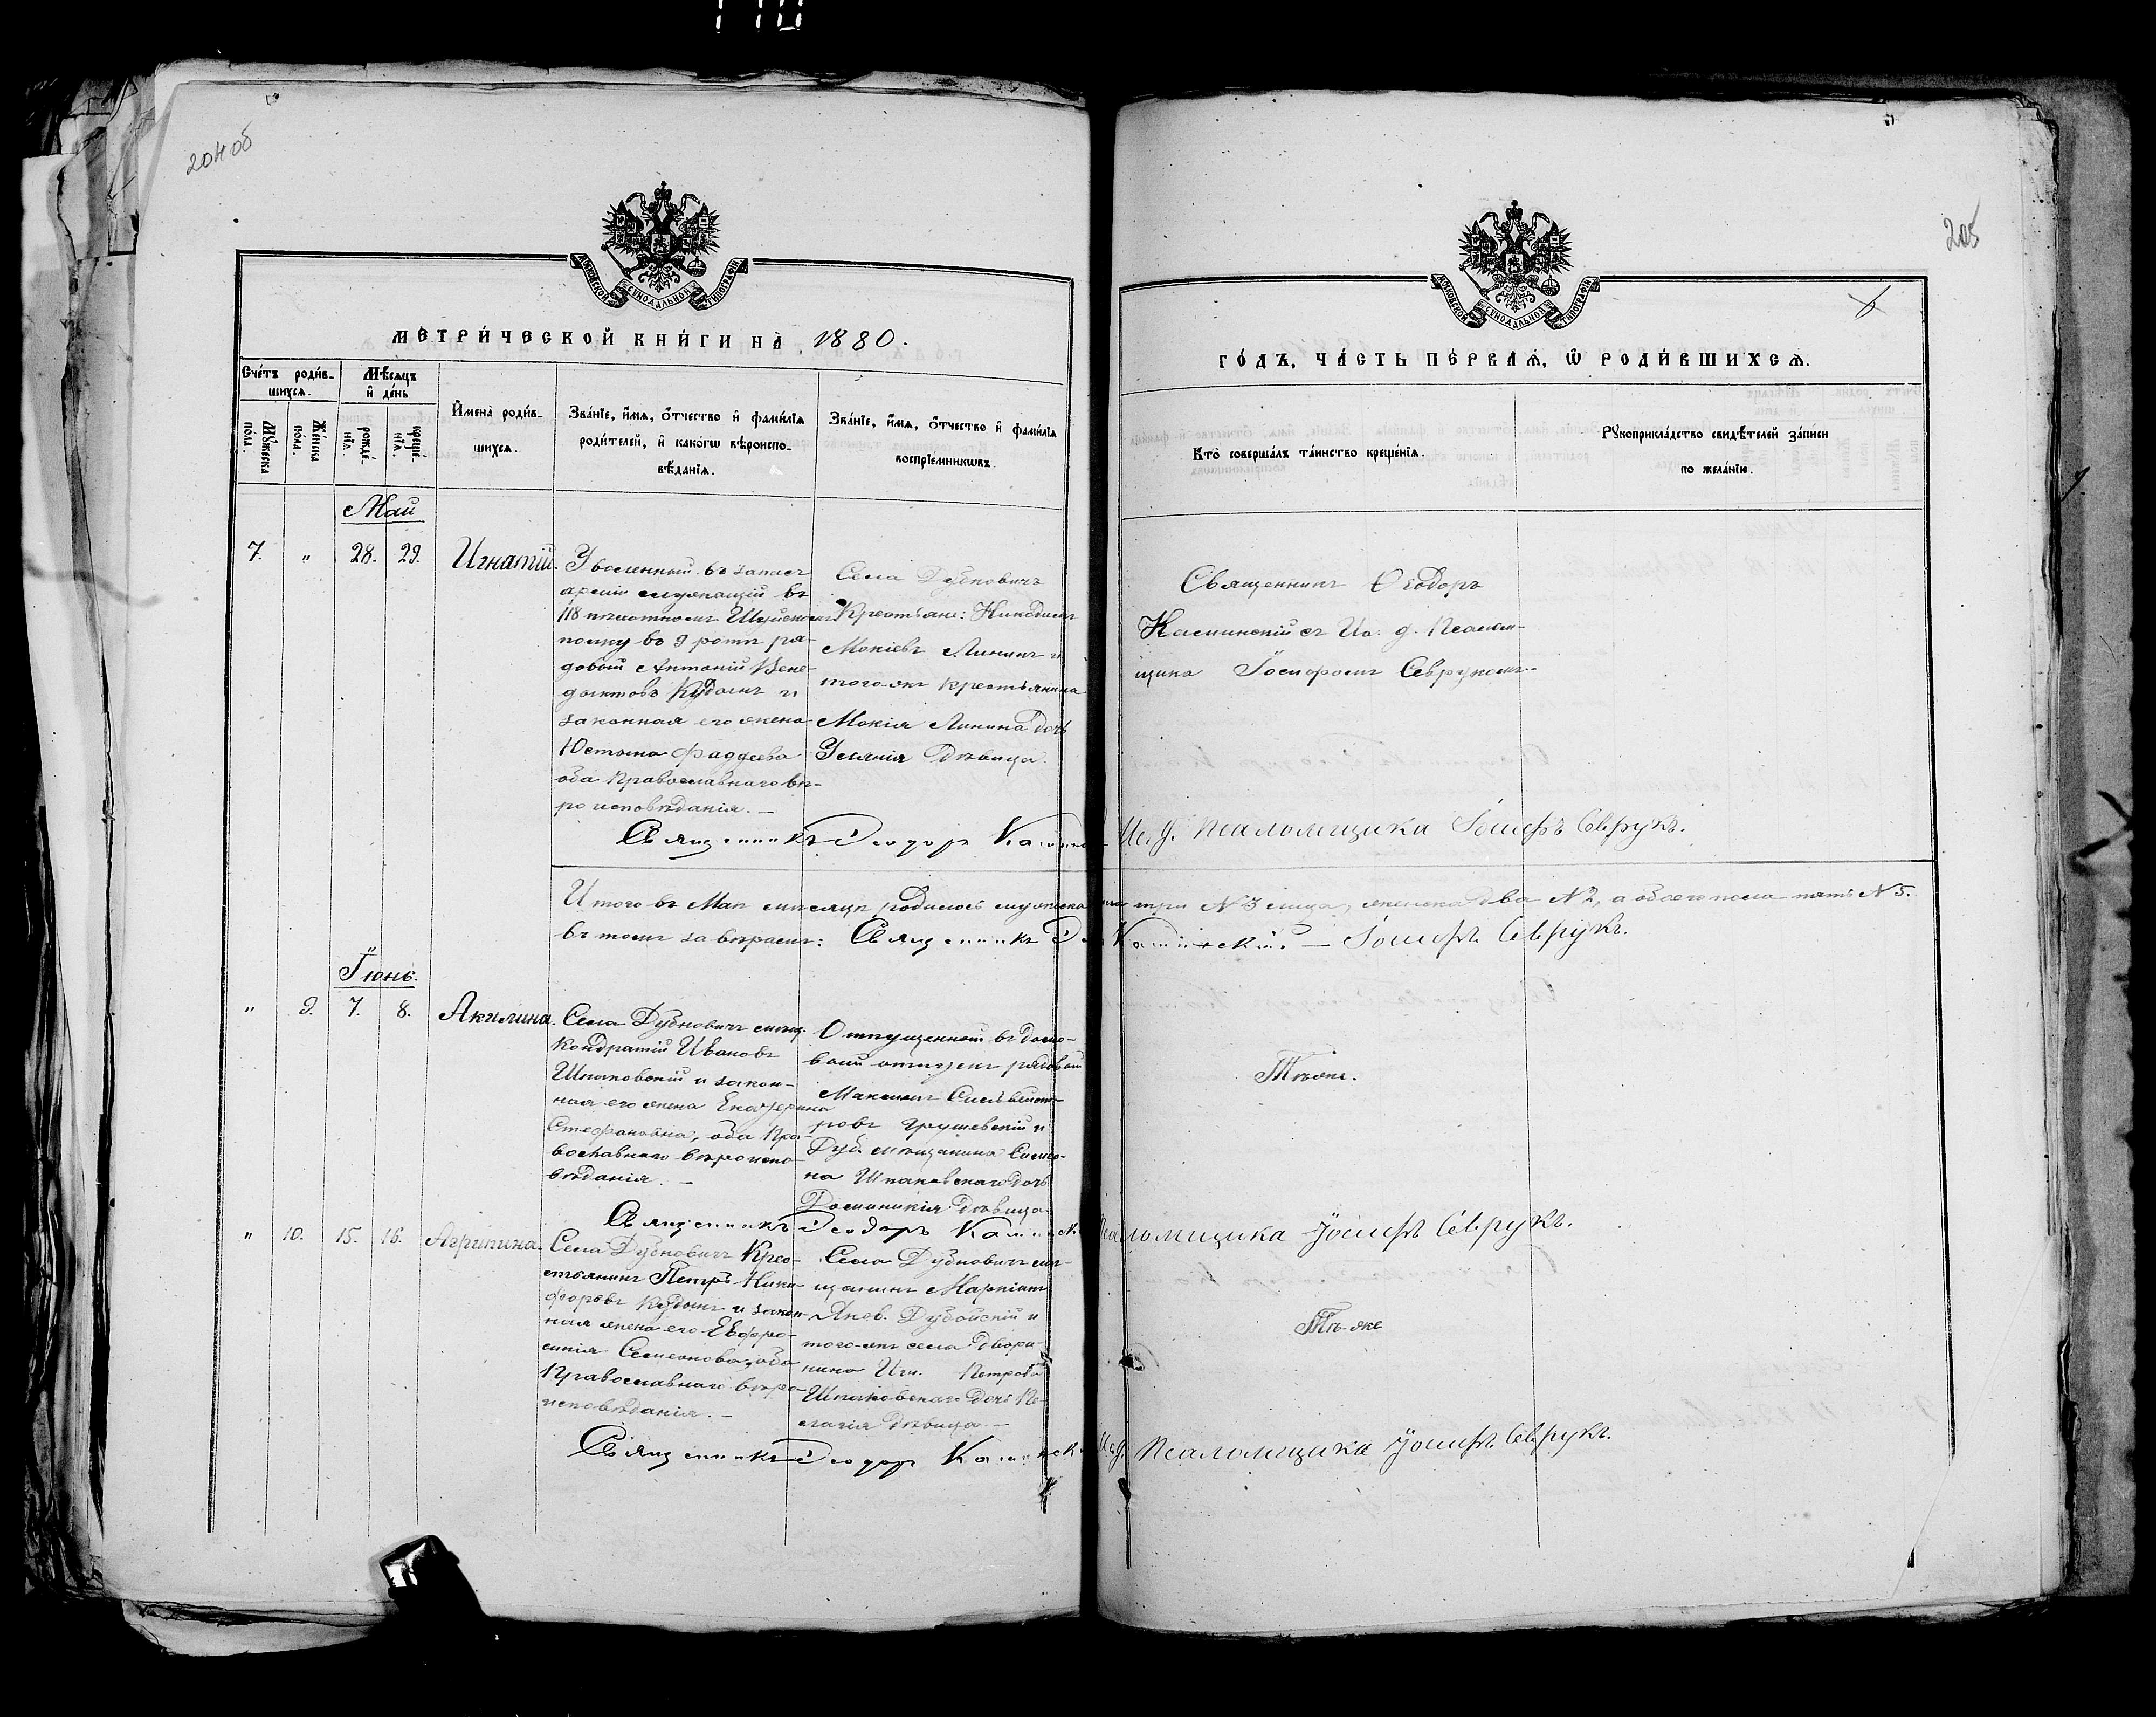 204 об
205
МОСКОВСКОЙ СѴНОДАЛЬНОЙ ТИПОГРАФІИ
МОСКОВСКОЙ СѴНОДАЛЬНОЙ ТИПОГРАФІИ
МЕТРИ́ЧЕСКОЙ КНИ́ГИ НА̀ 1880.
ГО́ДЪ, ЧА́СТЬ ПЕ́РВАѦ, Ѡ РОДИ́ВШИХСѦ.
Сче́тъ роди́в-
шихсѧ.
Мѣсѧцъ
и де́нь
Мꙋжеска
по́ла.
Же́нска
по́ла.
рожде́-
нїѧ.
креще́-
нїѧ.
Имена̀ роди́в-
шихсѧ.
Зва́нїе, и́мѧ, о́тчество и фами́лїѧ
роди́телей, и како́гѡ вѣроиспо-
вѣ́данїѧ.
Зва́нїе, и́мѧ, о́тчество и фами́лїѧ
воспрїе́мникѡвъ.
Кто̀ соверша́лъ та́инство креще́нїѧ.
Рꙋкоприкла́дство свидѣ́телей за́писи
по жела́нїю.
Май
7. " 28. 29. Игнатій.
Уволенный въ запасъ
арміи служащій въ
118 пѣхотномъ Шуйскомъ
полку въ 9 ротѣ ря-
довой Антоній Вене-
диктовъ Кудымъ и
законная его жена
Юстына Фаддеева
оба Православнаго вѣ-
роисповѣданія. —
Села Дубновичъ
Крестьяне: Никодимъ
Мокіевъ Лининъ и
того-же крестьянина
Мокія Линина дочь
Дѣвица.
Священникъ Ѳеодоръ
Калинскій съ Ис. д. Псалом-
щика Іосифомъ Севрукомъ.
Священникъ Ѳеодоръ
Ис. д. Псаломщика Іосифъ Севрукъ.
Итого въ Маѣ мѣсяцѣ родилось мужеска пола три № 3 лица, женска два № 2, а обоего пола пять № 5.
въ томъ завѣряемъ: Священникъ Калинскій. — Іосифъ Севрукъ.
Іюнь.
" 9. 7. 8. Акилина.
Села Дубновичъ мѣщ.
Кондратій Ивановъ
Шпаковскій и закон-
ная его жена Екатерина
Стефановна, оба Пра-
вославнаго вѣроиспо-
вѣданія. —
Отпущенный въ домо-
вый отпускъ рядовой
Максимъ Сильвест-
ровъ Грушевскій и
Дуб. мѣщанина Симео-
на Шпаковскаго дочь
Доминикія дѣвица
Тѣ-же.
Священникъ Ѳеодоръ
Псаломщика Іосифъ Севрукъ.
" 10. 15. 16. Агрипина.
Села Дубновичъ Кре-
стьянинъ Петръ Ники-
форовъ Кудымъ и закон-
ная жена его Евфро-
синія Семеонова, оба
Православнаго вѣро-
исповѣданія. —
Села Дубновичъ мѣ-
щанинъ
Яков. Дубойскій и
того-же села дворя-
нина Игн. Петрова
Шпаковскаго дочь Пе-
лагія дѣвица —
Тѣ-же
Священникъ Ѳеодоръ
Ис. д. Псаломщика Іосифъ Севрукъ.